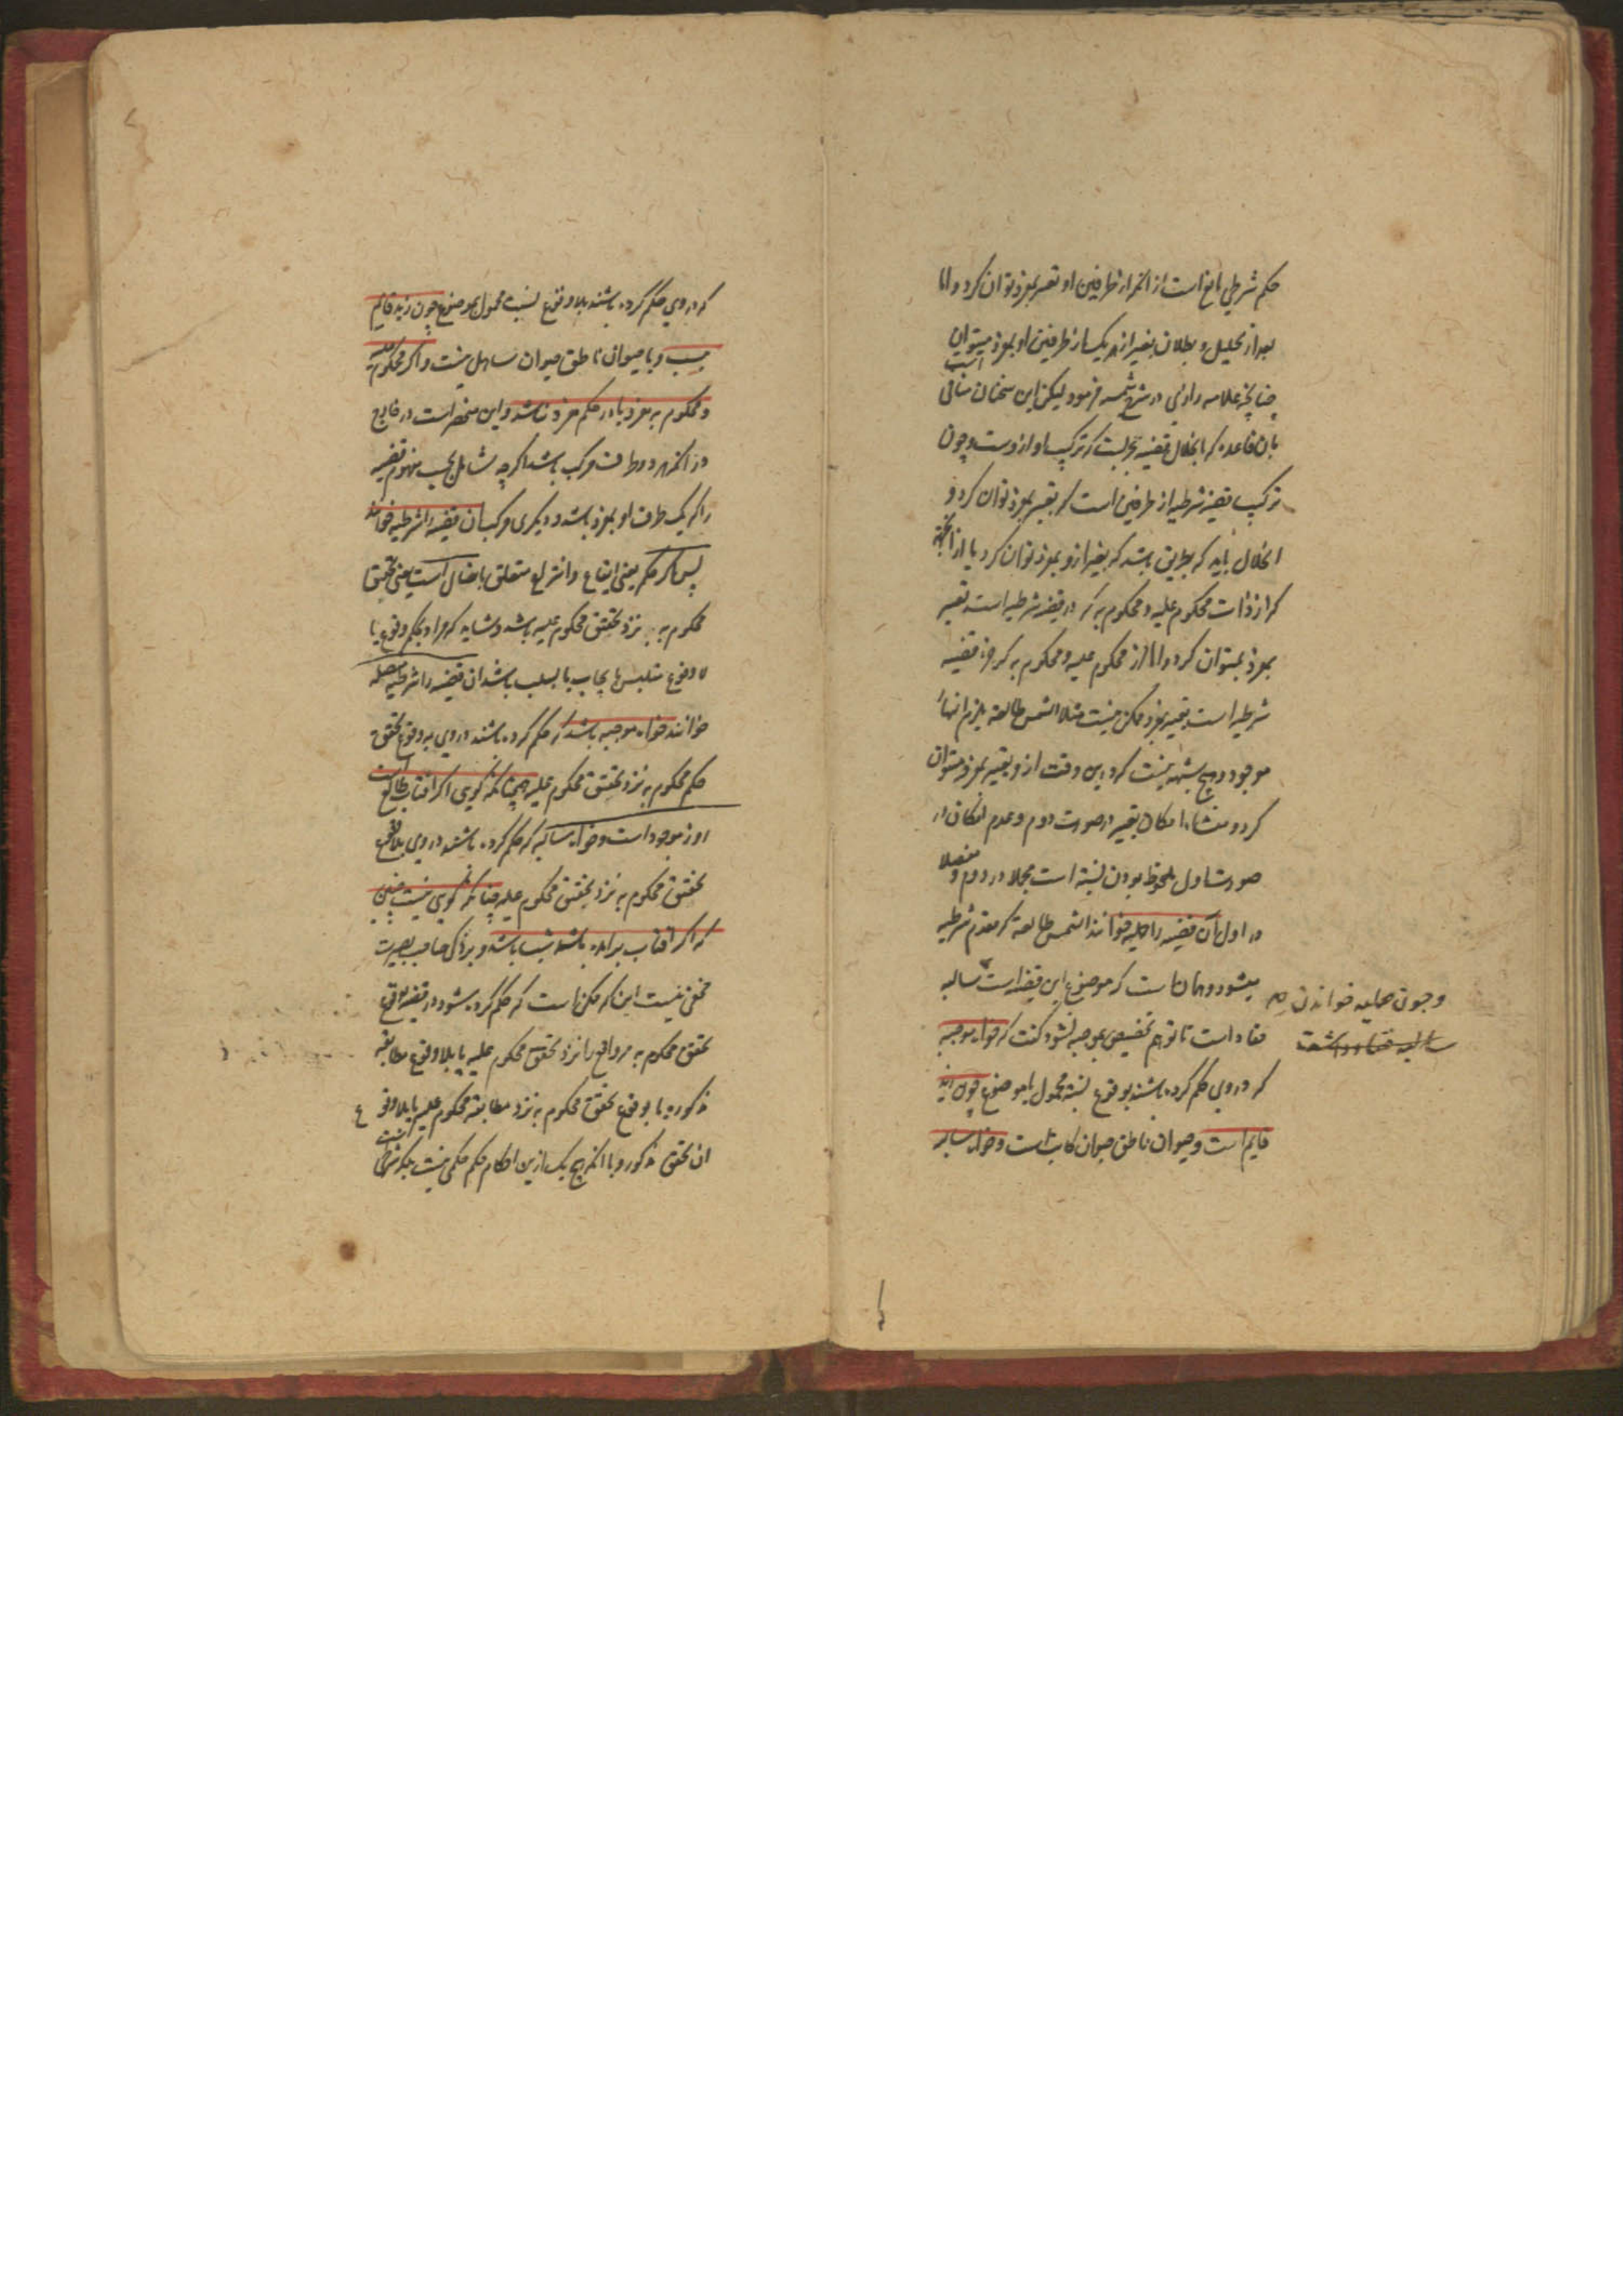 حکم شرطی مانع است از انکه از طرفین او تعبیر بمفرد توان کرد و اما
بعد از تحلیل و بطلان تعبیر از هر یک از طرفین او بمفرد میتوان
چنانچه علامه رازی در شرح شمسیه فرمود لیکن این سخنان منافی است
بان قاعده که انحلال قضیه بچیزیست که ترکیب او ازوست و چون
ترکیب قضیه شرطیه از طرفین است که تعبیر بمفرد نتوان کرد و
انحلال باید که بطریقی باشد که تعبیر ازو بمفرد نتوان کرد یا از آنجهة
که از ذات محکوم علیه و محکوم به که در قضیه شرطیه است تعبیر
بمفرد میتوان کرد و اما از محکوم علیه و محکوم به که جزء قضیه
شرطیه است تعبیر بمفرد ممکن نیست مثلا الشمس طالعة یلزم النهار
موجود و هیچ شبهه نیست که در این وقت ازو تعبیر بمفرد میتوان
کرد و منشاء امکان تعبیر در صورت دوم و عدم امکان در
صورت اول ملحوظ بودن نسبة است مجملا در دوم و مفصلا
در اول آن قضیه را حملیه خوانند الشمس طالعة که مقدم شرطیه
میشود و همان است که موضوع این قضیه است سالبه
وچون حملیه خواندن صح
مقاد است تا توهم تخصیص بموجبه نشود گفت که خواه موجبه
که در وی حکم کرده باشند بوقوع نسبة محمول با موضوع چون زید
قایم است و حیوان ناطق حیوان کاتب است و خواه سالبه
که در وی حکم کرده باشند بلاوقوع نسبت محمول بموضوع چون زید قایم
نیست و یا حیوان ناطق حیوان ساهل نیست و اگر محکوم علیه
و محکوم به مفرد یا در حکم مفرد نباشد و این منحصر است در خارج
در انکه هر دو طرف مرکب باشد اگر چه شامل بحسب مفهوم قضیه
را که یک طرف او بمفرد باشد و دیگری مرکب آن قضیه را شرطیه خوانند
پس اگر حکم یعنی ایقاع و انتزاع متعلق باتصال است یعنی تحقق
محکوم به نزد تحقق محکوم علیه باشد و شاید که مراد بحکم وقوع یا
لا وقوع متلبس بایجاب یا بسلب باشد ان قضیه را شرطیه متصله
خوانند خواه موجبه باشد که حکم کرده باشند در وی به وقوع تحقق
حکم محکوم به نزد تحقق محکوم علیه همچنانکه گویی اگر افتاب طالع است
روز موجود است و خواه سالبه که حکم کرده باشند در وی بلاوقوع
تحقق محکوم به نزد تحقق محکوم علیه چنانکه گویی نیست چنین
که اگر افتاب برامده باشد شب باشد و بر ذکی صاحب بصیرت
مخفی نیست اینکه ممکن است که حکم کرده شود در قضیه بوقوع
تحقق محکوم به در واقع یا نزد تحقق محکوم علیه یا بلاوقوع مطابقه
مذکوره یا بوقوع تحقق محکوم به نزد مطابقه محکوم علیه یا بلاوقوع
ان تحقق مذکور و با انکه هیچ یک ازین احکام حکم حملی نیست بلکه شرطی است